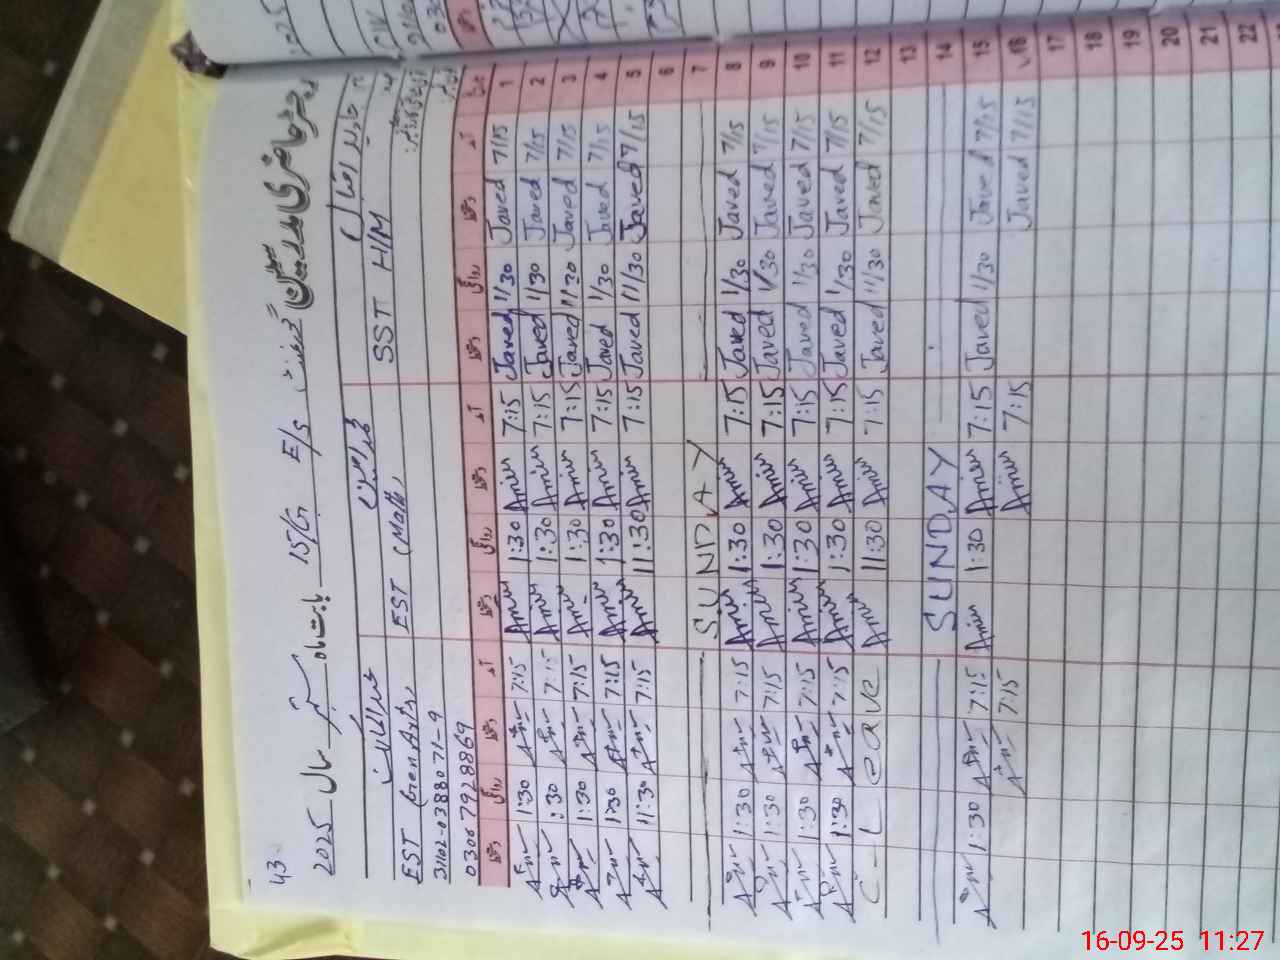 43
رجسٹر حاضری معلمین گورنمنٹ E/S 15/G بابت ماہ ستمبر سال 2025
جاوید اقبال محمد امین
SST H/M EST (Math) EST
31102-0388071-9
03067928869
تاریخ آمد دستخط روانگی دستخط آمد دستخط روانگی دستخط آمد دستخط روانگی دستخط
1 7/15 Javed 1/30 Javed 7:15 Amin 1:30 Amin 7:15 1:30
2 7/15 Javed 1/30 Javed 7:15 Amin 1:30 Amin 7:15 1:30
3 7/15 Javed 11/30 Javed 7:15 Amin 1:30 Amin 7:15 1:30
4 7/15 Javed 1/30 Javed 7:15 Amin 1:30 Amin 7:15 1:30
5 7/15 Javed 11/30 Javed 7:15 Amin 11:30 Amin 7:15 11:30
6
7 SUNDAY
8 7/15 Javed 1/30 Javed 7:15 Amin 1:30 Amin 7:15 1:30
9 7/15 Javed 1/30 Javed 7:15 Amin 1:30 Amin 7:15 1:30
10 7/15 Javed 1/30 Javed 7:15 Amin 1:30 Amin 7:15 1:30
11 7/15 Javed 1/30 Javed 7:15 Amin 1:30 Amin 7:15 1:30
12 7/15 Javed 11/30 Javed 7:15 Amin 11:30 Amin C-Leave
13
14 SUNDAY
15 7/15 Javed 1/30 Javed 7:15 Amin 1:30 Amin 7:15 1:30
16 7/15 Javed 7:15 Amin 7:15
17
18
19
20
21
22
16-09-25 11:27